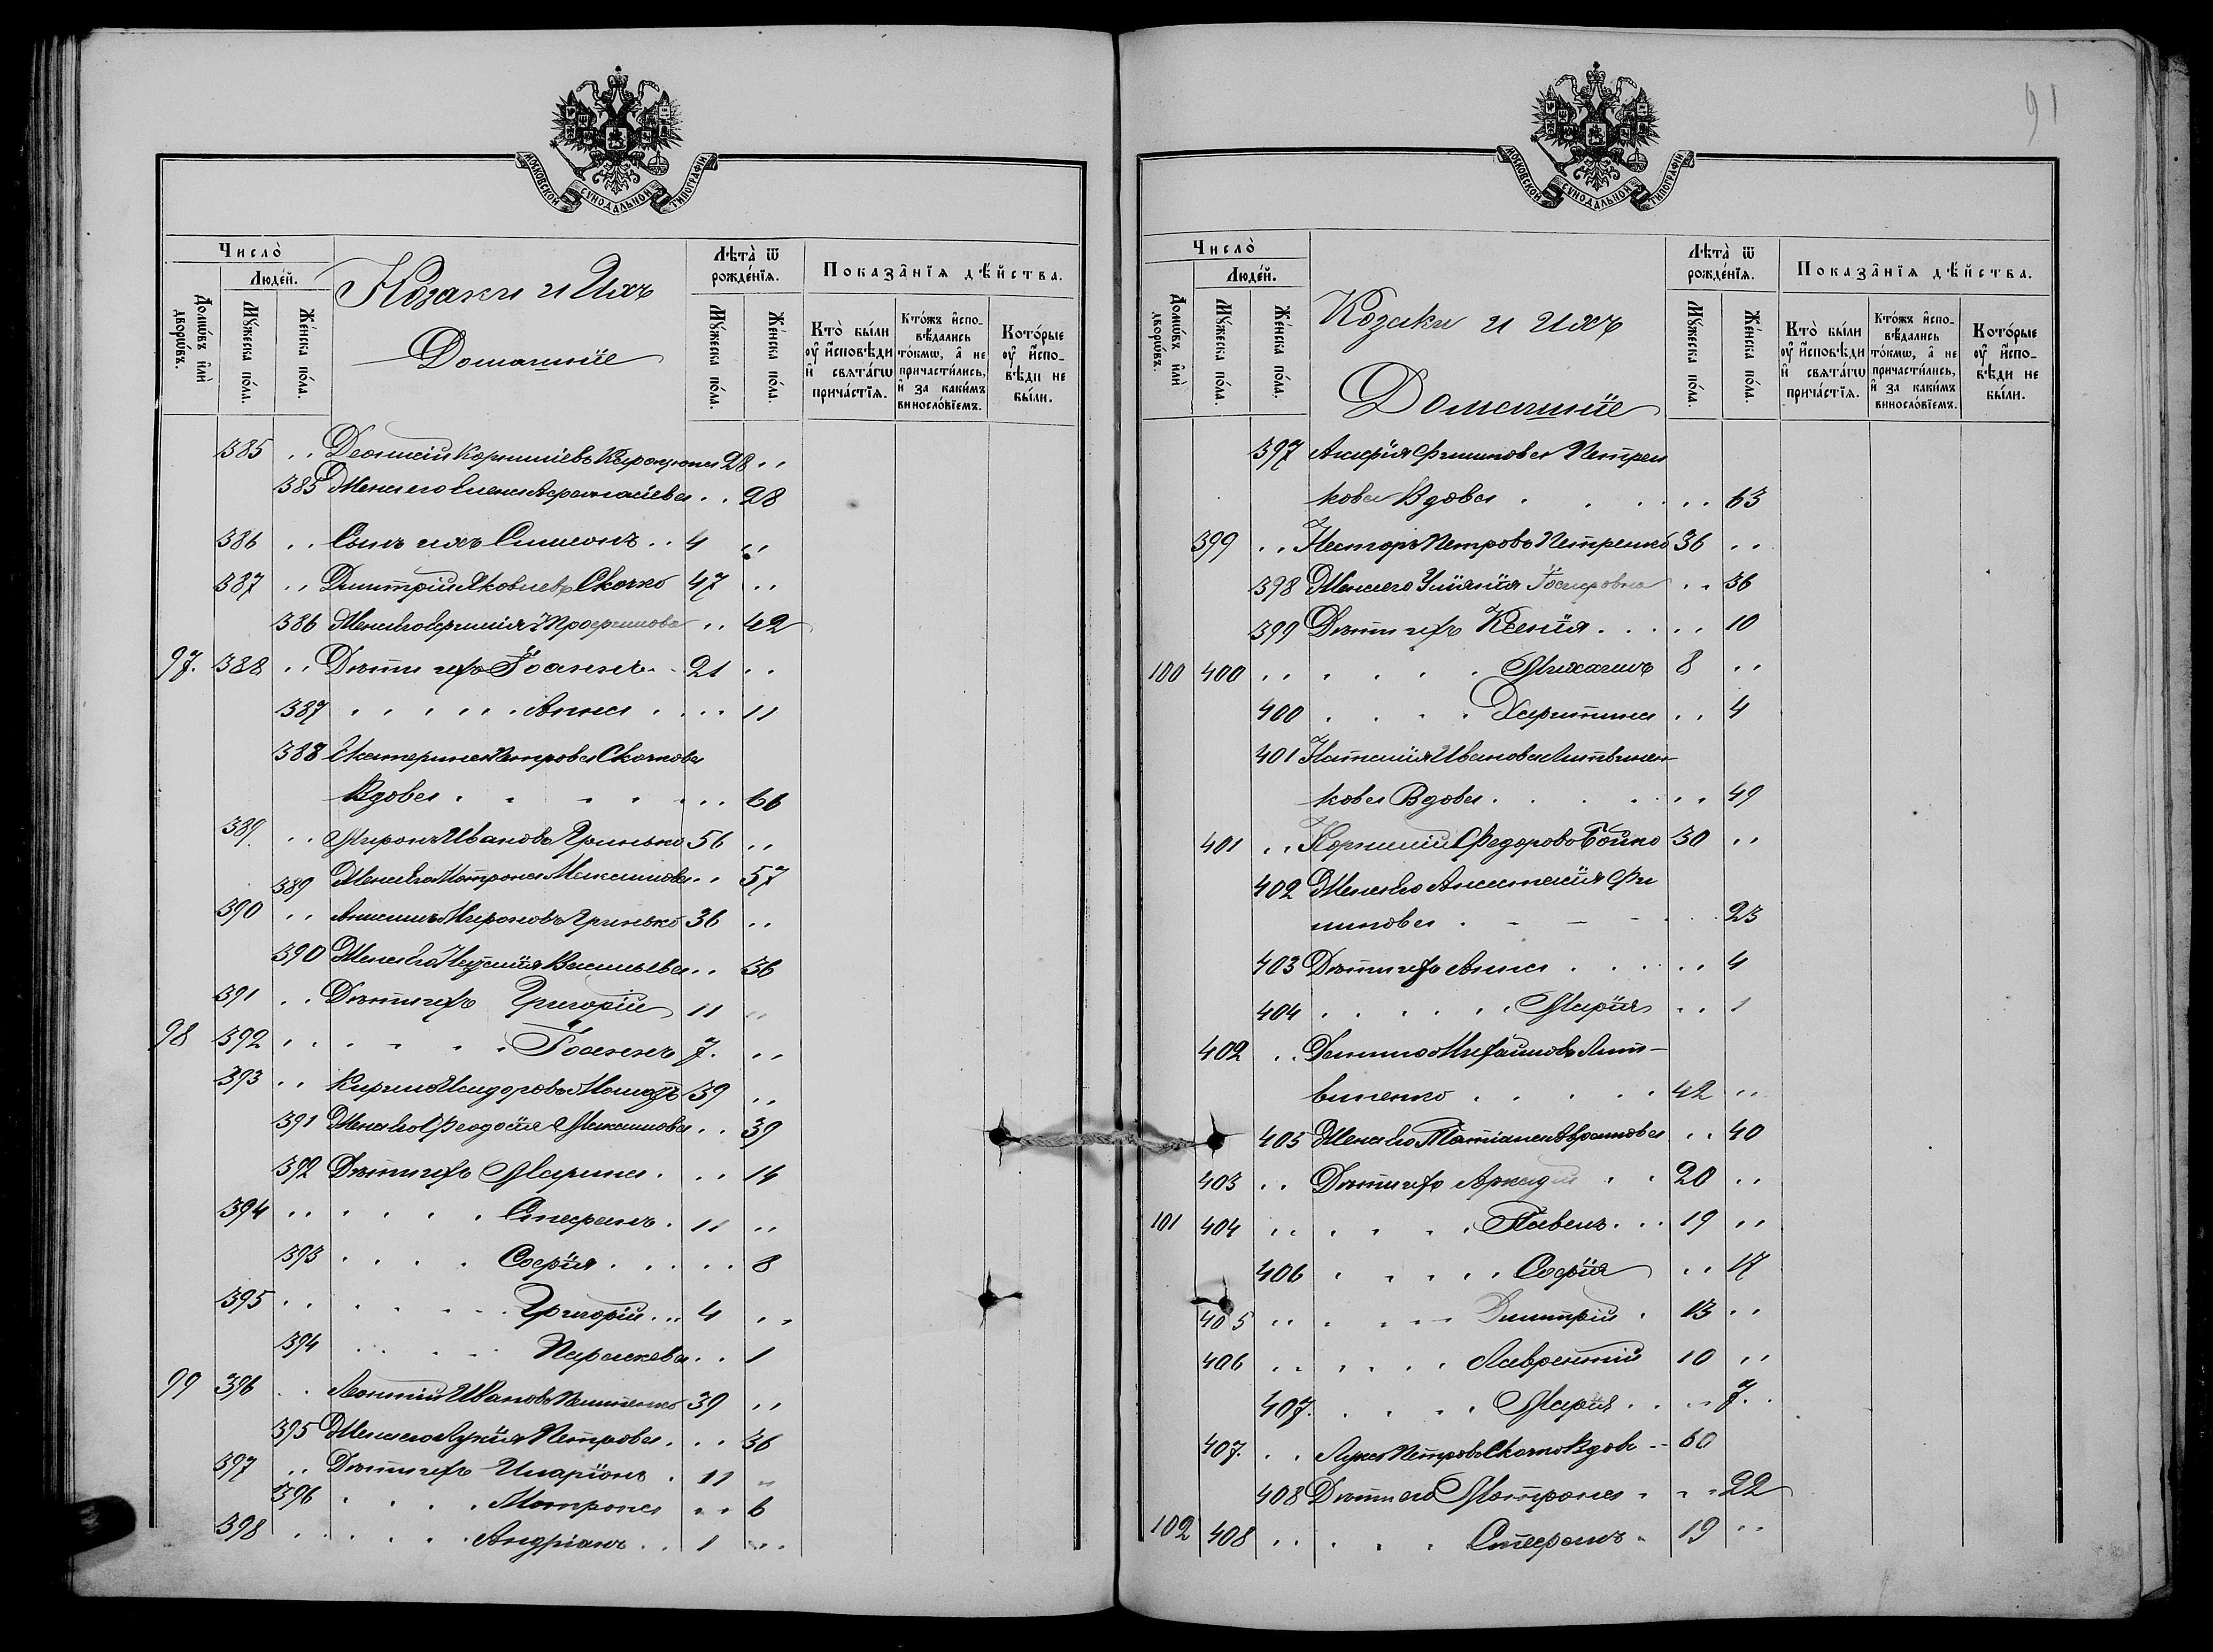 МОСКОВСКОЙ СѴНОДАЛЬНОЙ ТИПОГРАФІИ
Число̀
Людéй.
Домѡ́въ и҆лѝ дворѡ́въ.
Мꙋ́жеска по́ла.
Же́нска по́ла.
Козаки и Ихъ
Домашніе
Лѣта̀ ѿ рожде́нїѧ.
Мꙋ́жеска по́ла.
Же́нска по́ла.
Показа̑нїѧ дѣ́йства.
Кто̀ бы́ли оу҆ и҆сповѣди и҆ свѧта́гѡ прича́стїѧ.
Кто́жъ и҆сповѣ́дались то́кмѡ, а҆ не причасти́лись, и҆ за каки́мъ винослóвїемъ.
Кото́рые оу҆ и҆сповѣди не бы́ли.
385 " Деонисій Корниліевъ 28 "
385 Жена его Елена Афанасіева " 28
386 " Сынъ ихъ Симеонъ 4 "
387 " Димитрій Яковлевъ Скочко 47 "
386 Жена Его Трофимова " 42
97. 388 " Дѣти ихъ Іоаннъ 21 "
387 Анна " 11
388 Екатерина Петрова Скочкова
Вдова " 66
389 " Миронъ Ивановъ Гринько 56 "
389 Жена Его Матрона Максимова " 57
390 " Анисимъ Мироновъ Гринько 36 "
390 Жена Его Наталія Васильева " 36
391 " Дѣти ихъ Григорій 11 "
98 392 " Іоаннъ 7. "
393 " Кирилъ Исидоровъ 39 "
391 Жена Его Феодосія Максимова " 39
392 Дѣти ихъ Марина " 14
394 " Стефанъ 11 "
393 Софія " 8
395 " Григорій 4 "
394 Параскева " 1
99 396 " Леонтій Ивановъ 39 "
395 Жена его Лукія Петрова " 36
397 " Дѣти ихъ Иларіонъ 11 "
396 Матрона " 6
398 " Андріанъ 1 "
91
МОСКОВСКОЙ СѴНОДАЛЬНОЙ ТИПОГРАФІИ
Число̀
Людéй.
Домѡ́въ и҆лѝ дворѡ́въ.
Мꙋ́жеска по́ла.
Же́нска по́ла.
Козаки и ихъ
Домашніе
Лѣта̀ ѿ рожде́нїѧ.
Мꙋ́жеска по́ла.
Же́нска по́ла.
Показа̑нїѧ дѣ́йства.
Кто̀ бы́ли оу҆ и҆сповѣди и҆ свѧта́гѡ прича́стїѧ.
Кто́жъ и҆сповѣ́дались то́кмѡ, а҆ не причасти́лись, и҆ за каки́мъ винослóвїемъ.
Кото́рые оу҆ и҆сповѣди не бы́ли.
397 Агафія Филипова Петрен
кова Вдова " 63
399 " Несторъ Петровъ Петренко 36 "
398 Жена его Уліянія " 36
399 Дѣти ихъ Ксенія " 10
100 400 " Михаилъ 8 "
400 Харитина " 4
401 Наталія Иванова Литвинен
кова Вдова " 49
401 " Корнилій Федоровъ Бойко 30 "
402 Жена Его Анастасія Фи
липова 23
403 Дѣти ихъ Анна " 4
404 Марія " 1
402 " Данило Михайловъ Лит-
виненко 42 "
405 Жена Его Татіана Авраамова " 40
403 " Дѣти ихъ Аркадій 20 "
101 404 " Павелъ 19 "
406 Софія " 17
405 " Димитрій 13 "
406 " Лаврентій 10 "
407. Марія " 7.
407. " Лука Петровъ Скочко Вдовъ 60
408 Дѣти его Матрона " 22
102 408 " Стефанъ 19 "